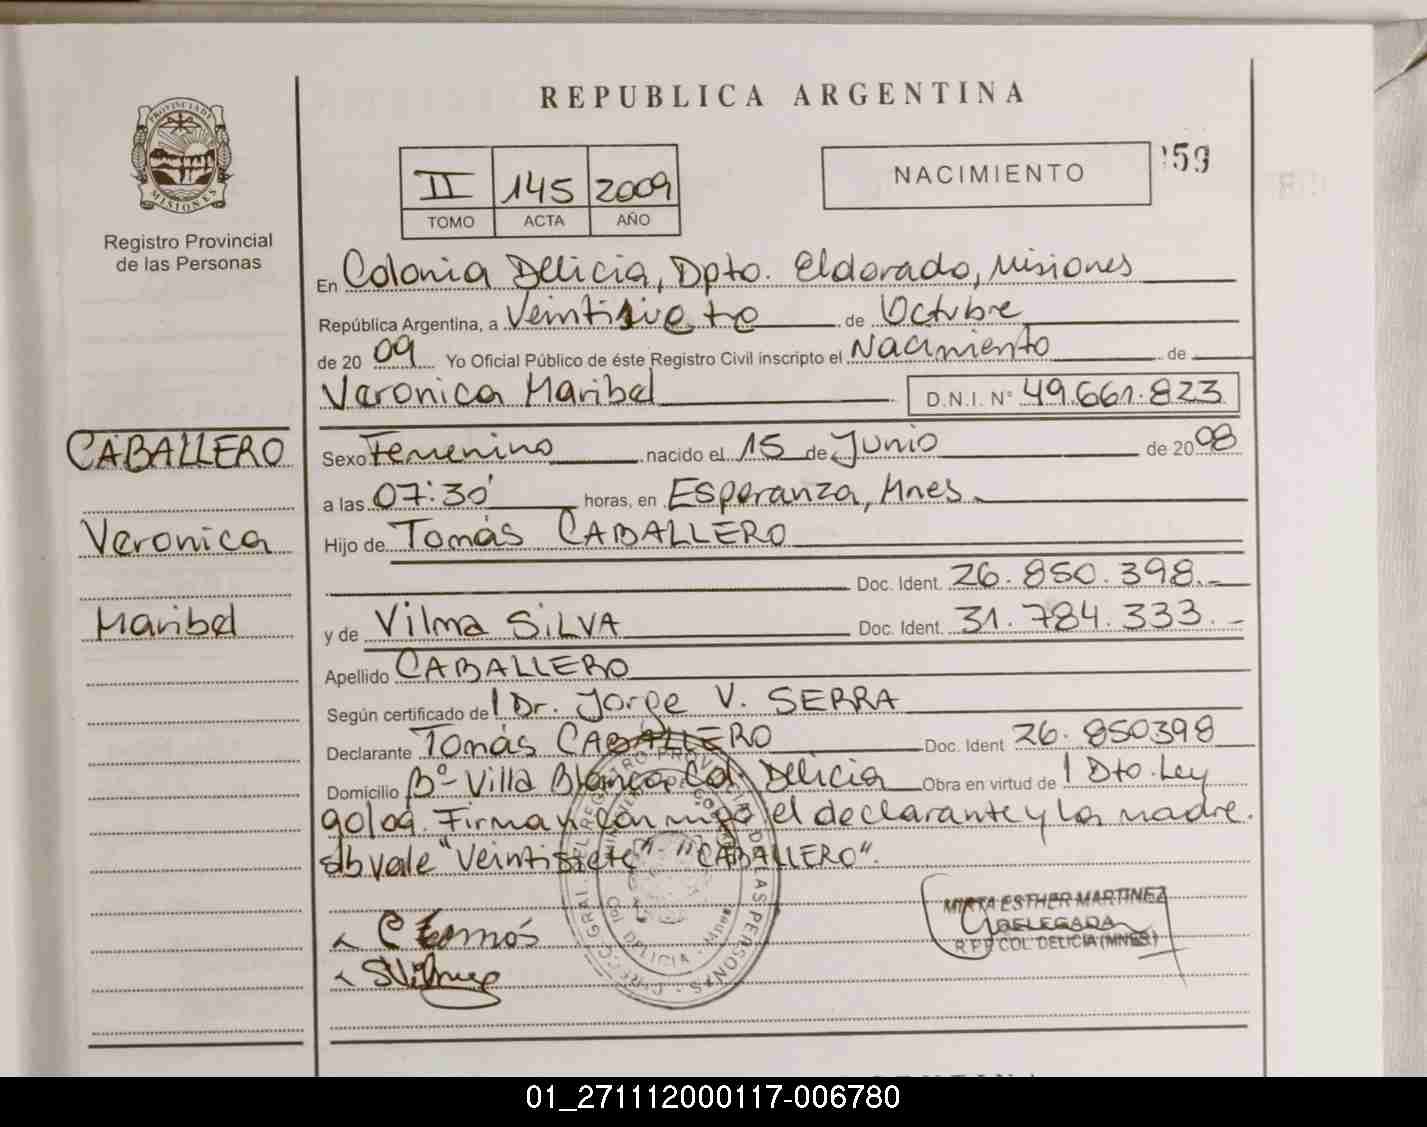 REPUBLICA ARGENTINA
PROVINCIA DE
MISIONES
Registro Provincial
de las Personas
II 145 2009
TOMO ACTA AÑO
NACIMIENTO
59
En Colonia Delicia, Dpto. Eldorado, Misiones
República Argentina, a Veintisiete de Octubre
de 2009 Yo Oficial Público de éste Registro Civil inscripto el Nacimiento de
Veronica Maribel D.N.I. N° 49.661.823
CABALLERO
Veronica
Maribel
Sexo Femenino nacido el 15 de Junio de 2008
a las 07:30' horas, en Esperanza, Mnes.
Hijo de Tomás CABALLERO
Doc. Ident. 26.850.398.-
y de Vilma SILVA Doc. Ident. 31.784.333.-
Apellido CABALLERO
Según certificado de l Dr. Jorge V. SERRA
Declarante Tomás CABALLERO Doc. Ident 26.850398
Domicilio B° Villa Blanca, Col. Delicia Obra en virtud de l Dto. Ley
90/09. Firman conmigo el declarante y la madre.
s/b vale "Veintisiete" "CABALLERO".
C tomás
MIRTA ESTHER MARTINEZ
DELEGADA
R.P.P. COL. DELICIA (MNES.)
01_271112000117-006780